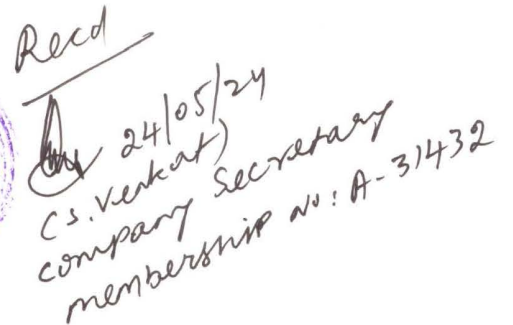 Recd
24/05/24
(S. Venkat)
company Secretary
membership No: A-31432